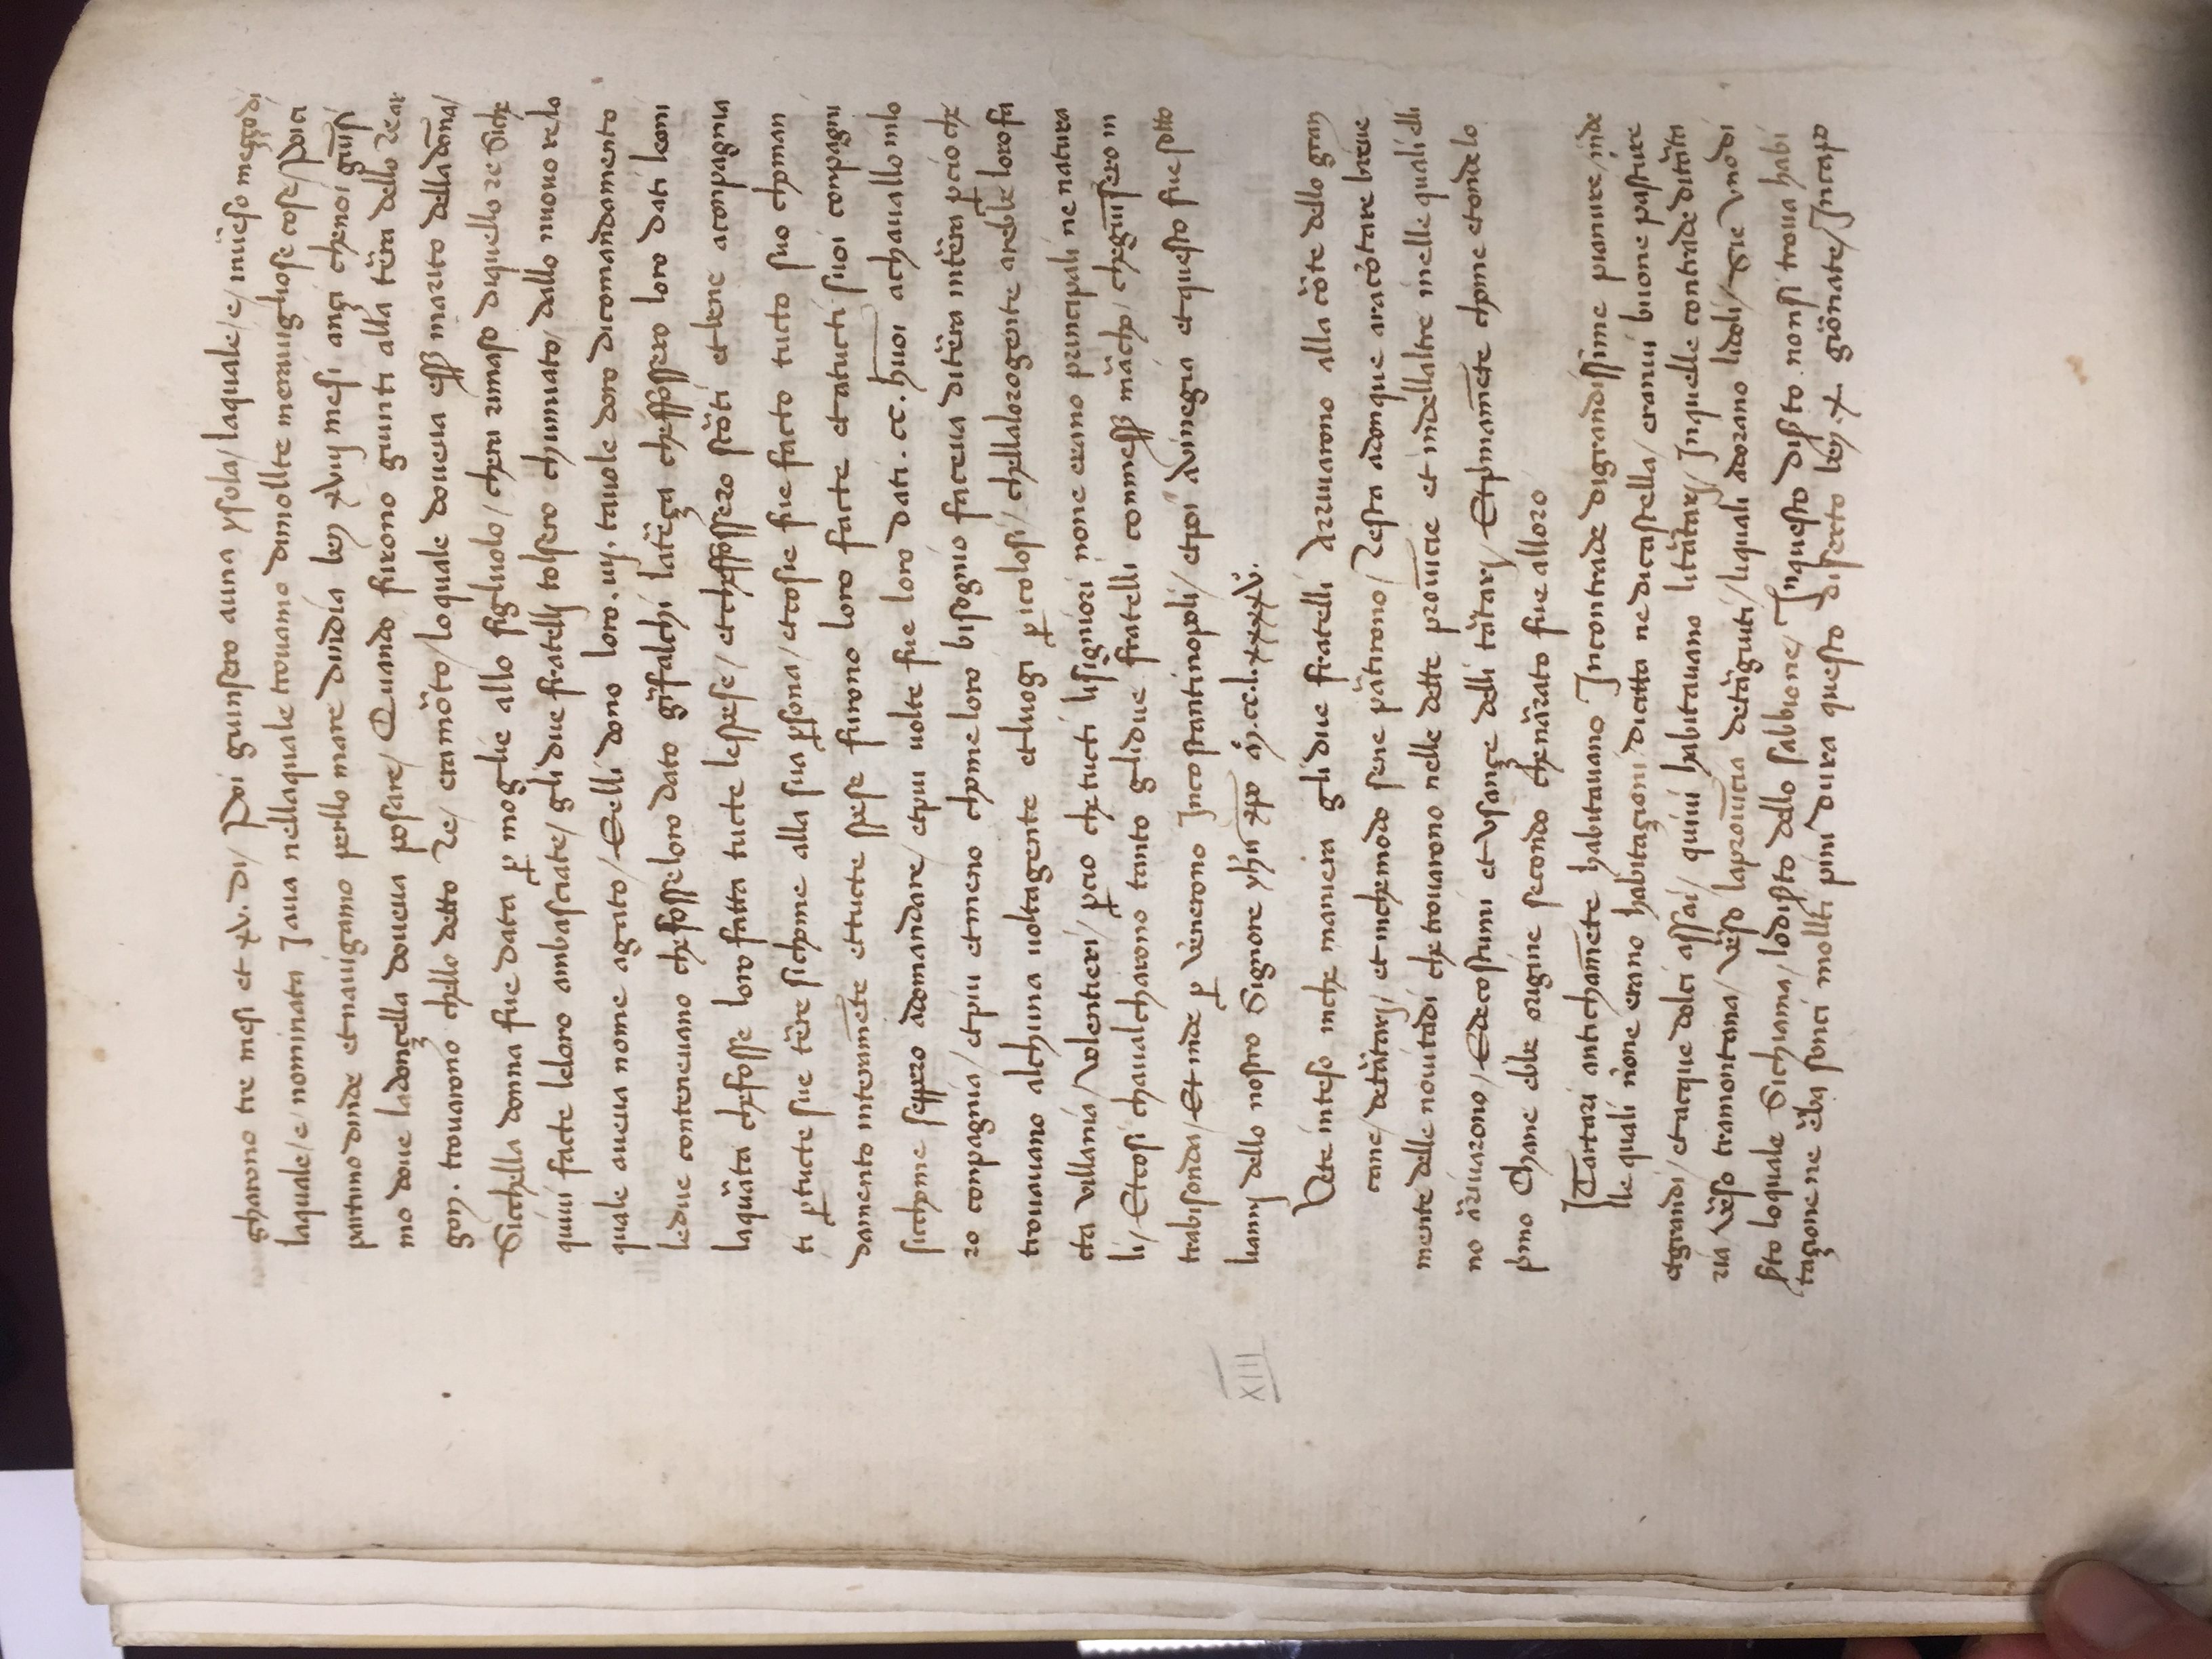 gharono tre mesi et xv. di / Poi giunsero auna ysola / laquale / e / inũeso mezzodi
laquale / e / nominata Jaua nellaquale trouamo dimollte merauigliose cose / Poici
partimo dinde et nauigamo perllo mare dindia ben xviij mesi anzi chenoi giũsi
mo doue ladonzella doueua posare / Quando furono giunti alla tẽra dello Re ar
gon . trouarono chello detto Re / era mõto / lo quale doueua eſſ marito della dõna /
Sicchella donna fue data ꝑ moglie allo figluolo / chera rimaso diquello re Siche
quiui facte leloro ambasciate / gli due fratellj tolsero chumiato / dallo nuouo re lo
quale aueua nome agato / Eelli dono loro . iiij . tauole doro dicomandamento
ledue conteneuano che fosse loro dato gĩfalchi latẽza cheffossero loro dati leoni
laquãta che fosse loro fatta tucte lespese / et cheffossero scõti et bene aconpagnia
ti ꝑtucte sue tẽre sichome alla sua ꝑsona / et cosie fue facto tucto suo choman
damento interamẽte et tucte spese furono loro facte et atucti suoi conpagni
sicchome seppero adomandare / et piu uolte fue loro dati . cc . huoĩ achauallo inlo
ro conpagnia / et piu et meno chome loro bisognio faceua ditẽra intẽra ꝑcio che
trouauano alchuna uoltagente et luogi ꝑicolosi / chellalorogente arebbe lorofa
cta villania / volentieri / ꝑcio che tucti lisigniori none erano principali ne natura
li / Et cosi chaualcharono tanto glidue fratelli conmeſſ mãcho / chegiũsero in
trabisonda / Et inde ꝑ vẽnerono Incostantinopoli / et poi avinegia et questo fue sotto
liannj dello nostro Signore yhũ xpo M.cc.l.xxxxv.
XIII
Vete inteso inche maniera gli due fratelli Arriuarono alla cõte dello gran
cane / detãtarj / et inchemodo sene pãtirono / Resta adonque aracõtare breue
mente delle nouitadi che trouarono nelle dette prouĩcie et indellaltre inelle quali elli
no ãriuarono / Edecostumi et vsanze delli tãtarj / Et pͥmamẽte chome et onde lo
pͥmo Chane ebbe origine secondo chenãrato fue alloro
I Tartari antichamẽte habitauano Incontrade digrandissime pianure / inde
lle quali nõne erano habitazioni dicitta ne dicastella / eranui buone pasture
et grandi / et acque dolci assai / quiui habitauano litãtarj / Inquelle contrade ditãta
ria / vẽso tramontana / vẽso laprouĩcia detãguiti / liquali adorano lidoli / Sie vno di
ẜto loquale Sichiama / lodiẜto dello sabbione / Inquesto diẜto nonsi troua habi
tazione ne ẽba sonci mollti pini dura questo diserto ben .x. giõnate / Incapo